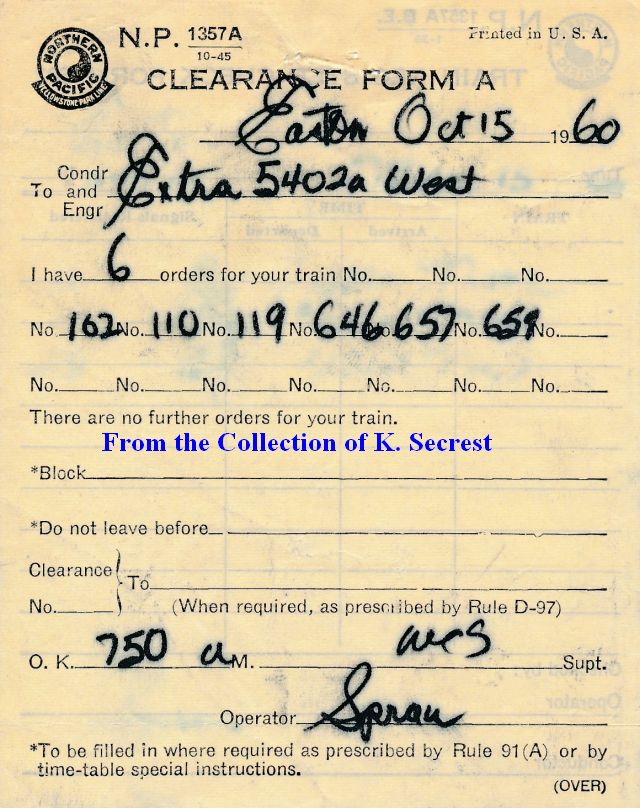 NORTHERN PACIFIC YELLOWSTONE PARK LINE
N.P. 1357A
10-45
Printed in U. S. A.
CLEARANCE FORM A
Easton Oct 15 1960
To Condr and Engr Extra 5402a West
I have 6 orders for your train No. No. No.
No. 162 No. 110 No. 119 No. 646 No. 657 No. 659 No.
No. No. No. No. No. No. No.
There are no further orders for your train.
From the Collection of K. Secrest
*Block
*Do not leave before
Clearance To
No. (When required, as prescribed by Rule D-97)
O. K. 750 a M. Supt.
Operator
*To be filled in where required as prescribed by Rule 91(A) or by
time-table special instructions.
(OVER)